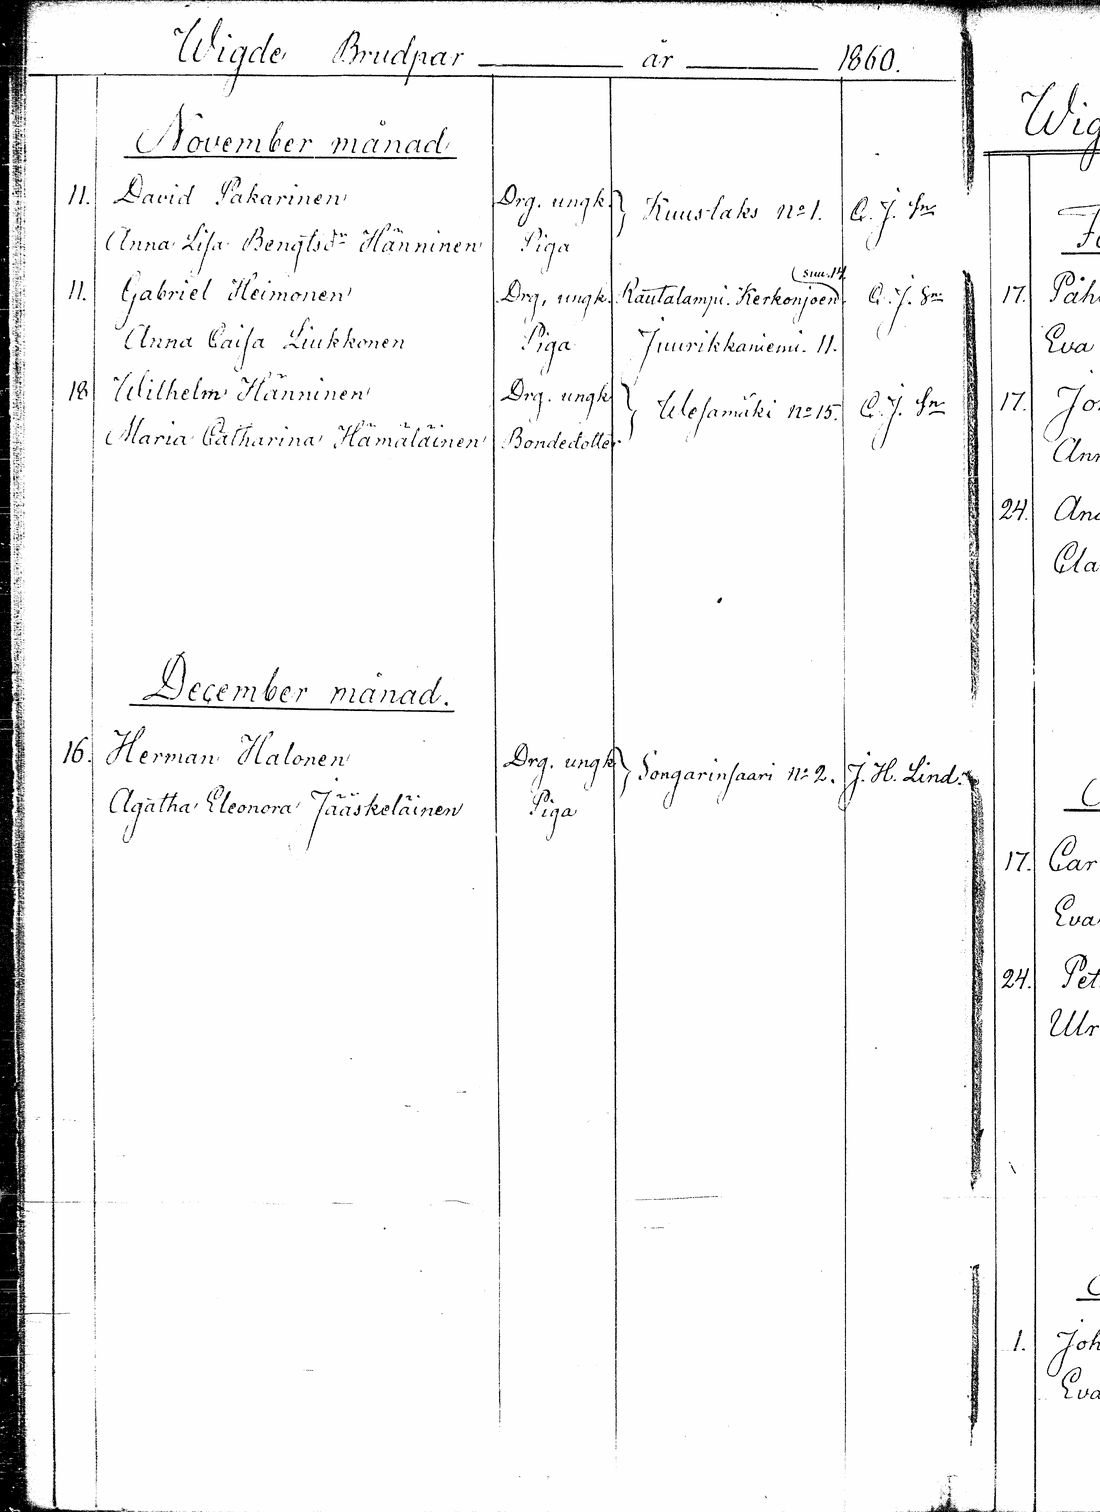 Wigde Brudpar år 1860.
November månad
11. David Pakarinen Drg. ungk. Kuuslaks no 1. C. J. Sn
Anna Lisa Bengtsdr Hänninen Piga
suu. 14.
11. Gabriel Heimonen Drg. ungk. Rautalampi. Kerkonjoen C. J. Sn
Anna Caisa Liukkonen Piga Juurikkaniemi. 11.
18 Wilhelm Hänninen Drg. ungk. Wesamäki no 15. C. J. Sn
Maria Catharina Hämäläinen Bondedotter
December månad.
16. Herman Halonen Drg. ungk Songarinsaari no 2. J. H. Lind.
Agatha Eleonora Jääskeläinen Piga
Wig
17. Påh
Eva
17. Jo
Ann
24. And
Cla
17. Car
Eva
24. Pet
Ulr
1. Joh
Eva